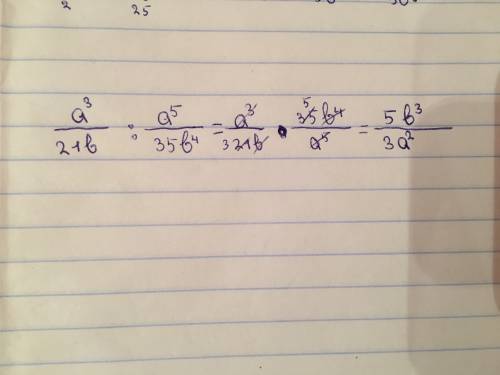 2 25
a³/21b : a⁵/35b⁴ = a³/3 21b · 5 35b⁴/a⁵ = 5b³/3a²